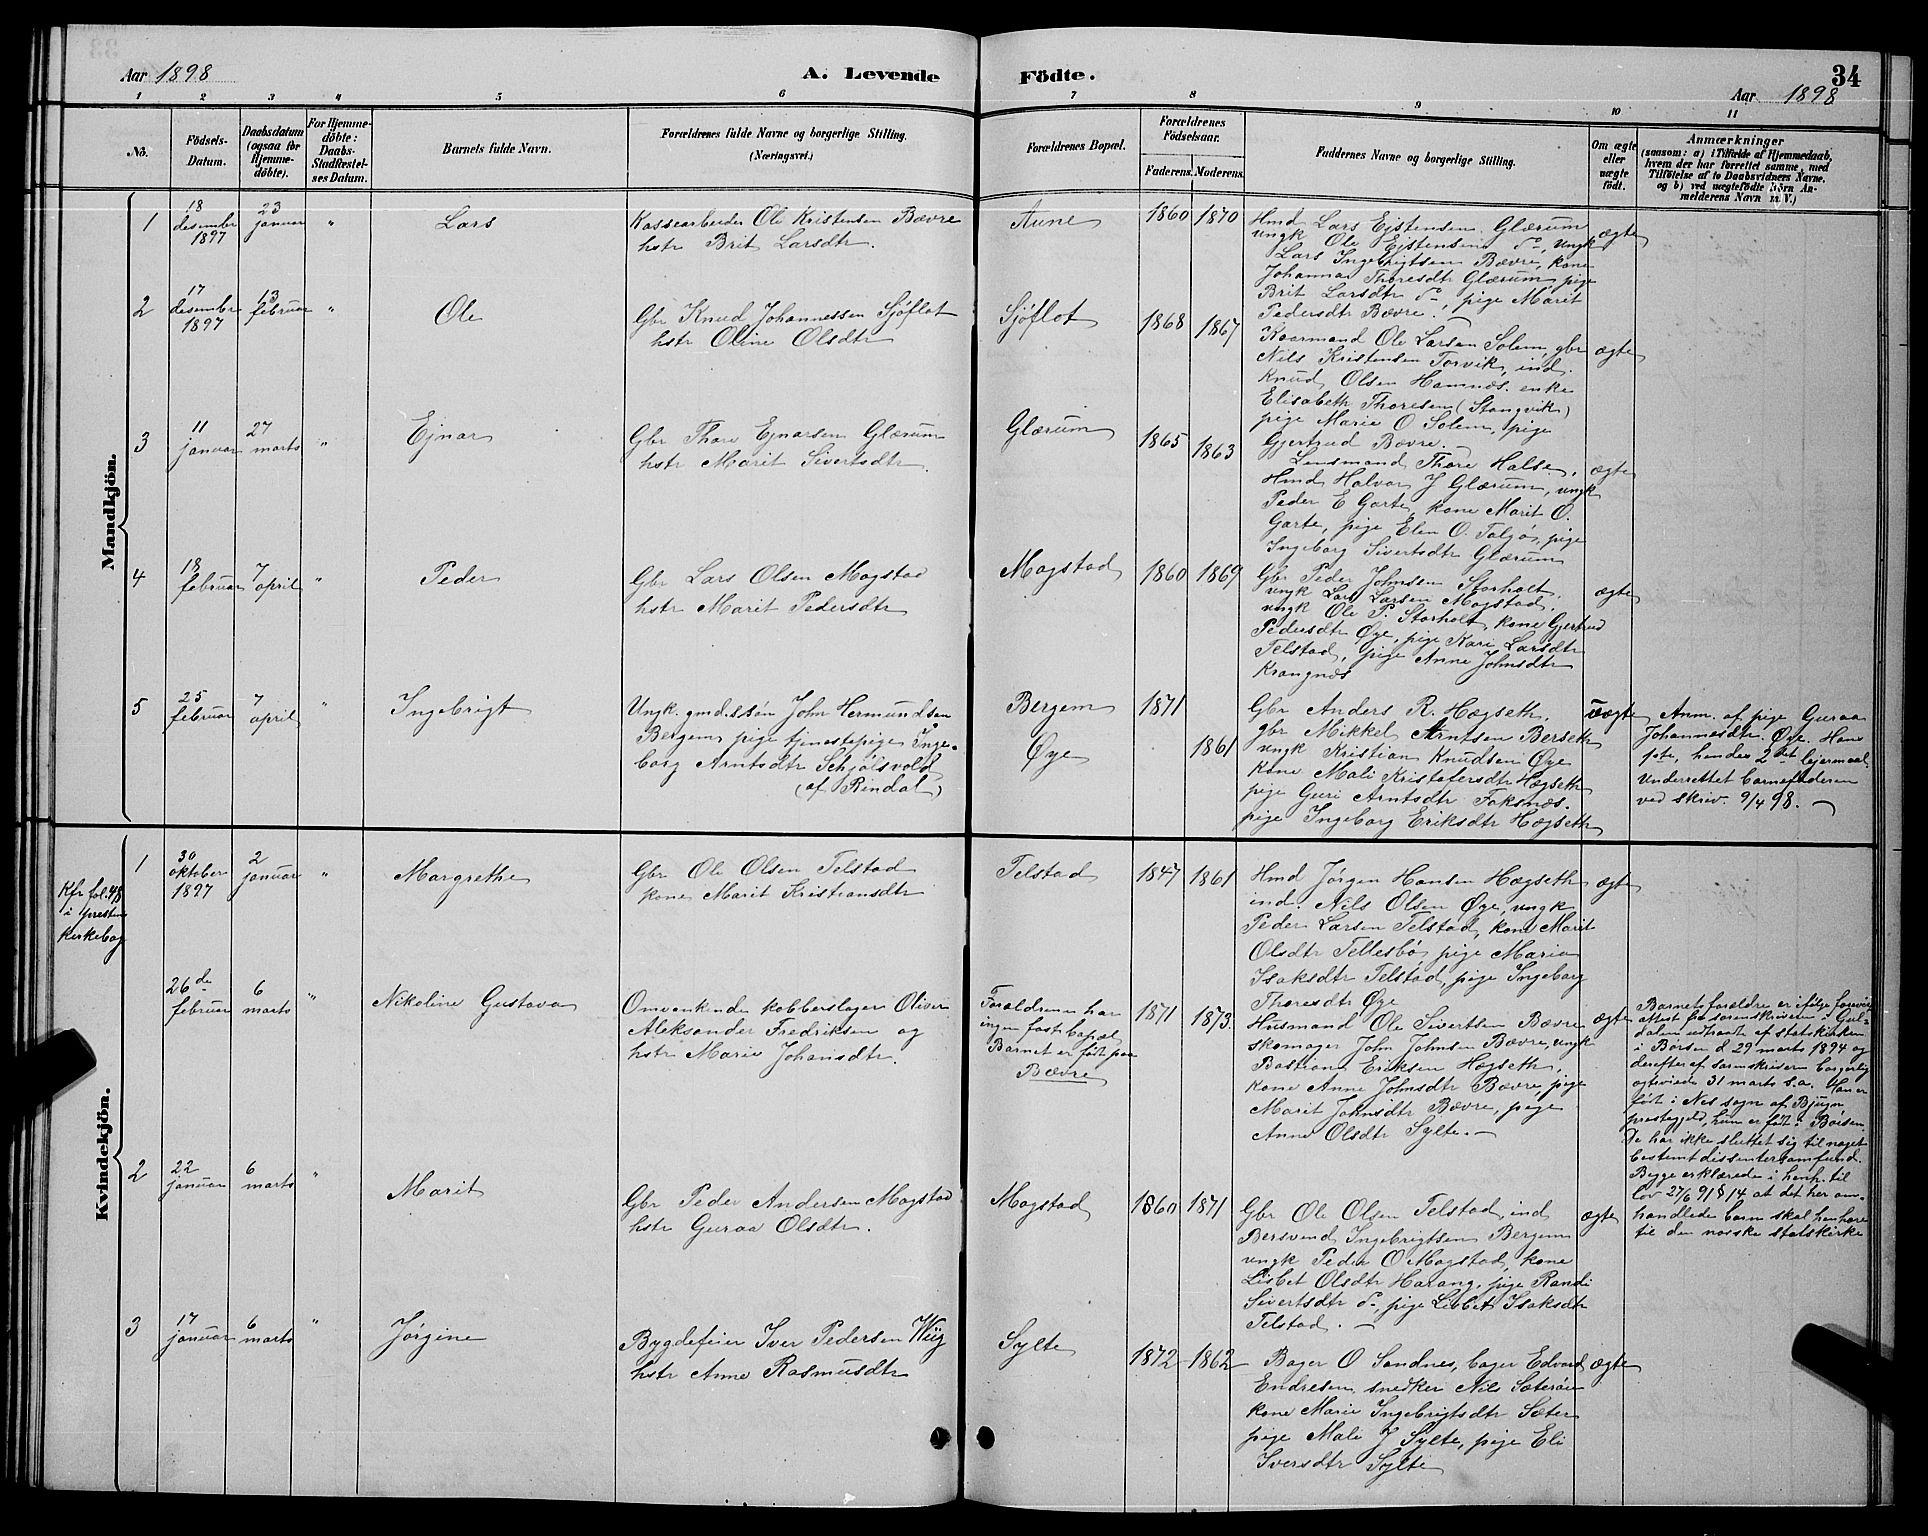 Aar 1898
A. Levende
Födte.
34
Aar 1898
1 2 3 4 5 6 7 8 9 10 11
No.
Födsels-
Datum.
Daabsdatum
(ogsaa for
Hjemme-
döbte).
For Hjemme-
döbte:
Daabs-
Stadfæstel-
ses Datum.
Barnets fulde Navn.
Forældrenes fulde Navne og borgerlige Stilling.
(Næringsvei.)
Forældrenes Bopæl.
Forældrenes
Födselsaar.
Faderens. Moderens.
Faddernes Navne og borgerlige Stilling.
Om ægte
eller
uægte
födt.
Anmærkninger
(saasom: a) i Tilfælde af Hjemmedaab,
hvem der har forrettet samme, med
Tilföielse af to Daabsvidners Navne,
og b) ved uægtefödte Börn An-
melderens Navn m. V.)
Mandkjön.
1
18
desember
1897
23
januar
"
Lars
Kassearbeider Ole Kristensen Bævre
hstr Brit Larsdtr.
Aune
1860 1870
Hmd Lars Ejstensen Glærum
ungk Ole Ejstensen do, ungk
Lars Ingebrigtsen Bævre, kone
Johanna Thoresdtr Glærum, pige
Brit Larsdtr do, pige Marit
Pedersdtr Bævre.
ægte
2
17
desember
1897
13
februar
"
Ole
Gbr Knud Johannessen Sjøflot
hstr Oline Olsdtr
Sjøflot
1868 1867
Kaarmand Ole Larsen Solem, gbr
Nils Kristensen Torvik, ind.
Knud Olsen Hamnes. enke
Elisabeth Thoresen (Stangvik)
pige Marie O Solem, pige
Gjertrud Bævre.
ægte
3
11
januar
27
marts
"
Ejnar
Gbr Thore Ejnarsen Glærum
hstr Marit Sivertsdtr.
Glærum
1865 1863
Lensmand Thore Halse,
Hmd Halvor J Glærum, ungk
Peder E Garte, kone Marit O.
Garte, pige Elen O. Talgø, pige
Ingeborg Sivertsdtr Glærum
ægte
4
18
februar
7
april
"
Peder
Gbr Lars Olsen Mogstad
hstr Marit Pedersdtr
Mogstad
1860 1869
Gbr Peder Johnsen Storholt.
ungk Lars Larsen Mogstad,
ungk Ole P. Storholt, kone Gjertrud
Pedersdtr Øye, pige Kari Larsdtr
Telstad, pige Anne Johnsdtr
Krangnes
ægte
5
25
februar
7
april
"
Ingebrigt
Ungk. gmd.ssøn John Hermundsen
Bergem, pige tjenestepige Inge-
borg Arntsdtr Schjølsvold
(af Rindal)
Bergem
Øye
1871
1861
Gbr Anders R. Hægseth.
gbr Mikkel Arntsen Berseth
ungk Kristian Knudsen Øye
kone Mali Kristofersdtr Hægseth
pige Guri Arntsdtr Foksnes.
pige Ingeborg Eriksdtr Hægseth
Uægte
Anm. af pige Guraa
Johannesdtr Øye. Hans
1ste, hendes 2det lejermaal.
Underrettet barnefaderen
ved skriv. 9/4 98.
Kvindekjön.
Kfr fol. 48
i prestens
kirkebog
1
30
oktober
1897
2
januar
"
Margrethe
Gbr Ole Olsen Telstad
kone Marit Kristiansdtr
Telstad
1847 1861
Hmd Jörgen Hansen Hægseth
ind. Nils Olsen Øye, ungk
Peder Larsen Telstad, kone Marit
Olsdtr Tellesbø, pige Maria
Isaksdtr Telstad, pige Ingeborg
Thoresdtr Øye
ægte
26de
februar
6
marts
"
Nikoline Gustava
Omvankende kobberslager Oliver
Aleksander Fredriksen og
hstr Marie Johansdtr.
Forældrene har
ingen fast bopæl
Barnet er født paa
Bævre
1871 1873.
Husmand Ole Sivertsen Bævre
skomager John Johnsen Bævre, ungk
Bastian Eriksen Hægseth,
kone Anne Johnsdtr Bævre, pige
Marit Johnsdtr Bævre, pige
Anne Olsdtr Sylte.
ægte
Barnets forældre er ifølge forevist
attest fra sorenskriveren i Gul-
dalen udtraadt af statskirken
i Børsen d 29 marts 1894 og
derefter af sorenskriveren borgerlig
ægteviede 31 marts s.a. Han er
født i Nes sogn af Bjugn
prestegjeld, hun er født i Børsen.
De har ikke sluttet sig til noget
bestemt dissentersamfund.
Begge erklærede i henh. til
lov 27/6 91 § 14 at det her om-
handlede barn skal henhøre
til den norske statskirke
2
22
januar
6
marts
"
Marit
Gbr Peder Andersen Mogstad
hstr Guraa Olsdtr.
Mogstad
1860 1871
Gbr Ole Olsen Telstad, ind
Bersvend Ingebrigtsen Bergem
ungk Peder O Mogstad, kone
Lisbet Olsdtr Harang, pige Randi
Sivertsdtr do, pige Lisbet Isaksdtr
Telstad.
ægte
3
17
januar
6
marts
"
Jørgine
Bygdefeier Iver Pedersen Wiig
hstr Anne Rasmusdtr
Sylte
1872 1862
Bager O Sandnes, bager Edvard
Endresen, snedker Nils Sæterøie
kone Marie Ingebrigtsdtr Sæter
pige Mali J Sylte, pige Eli
Iversdtr Sylte
ægte